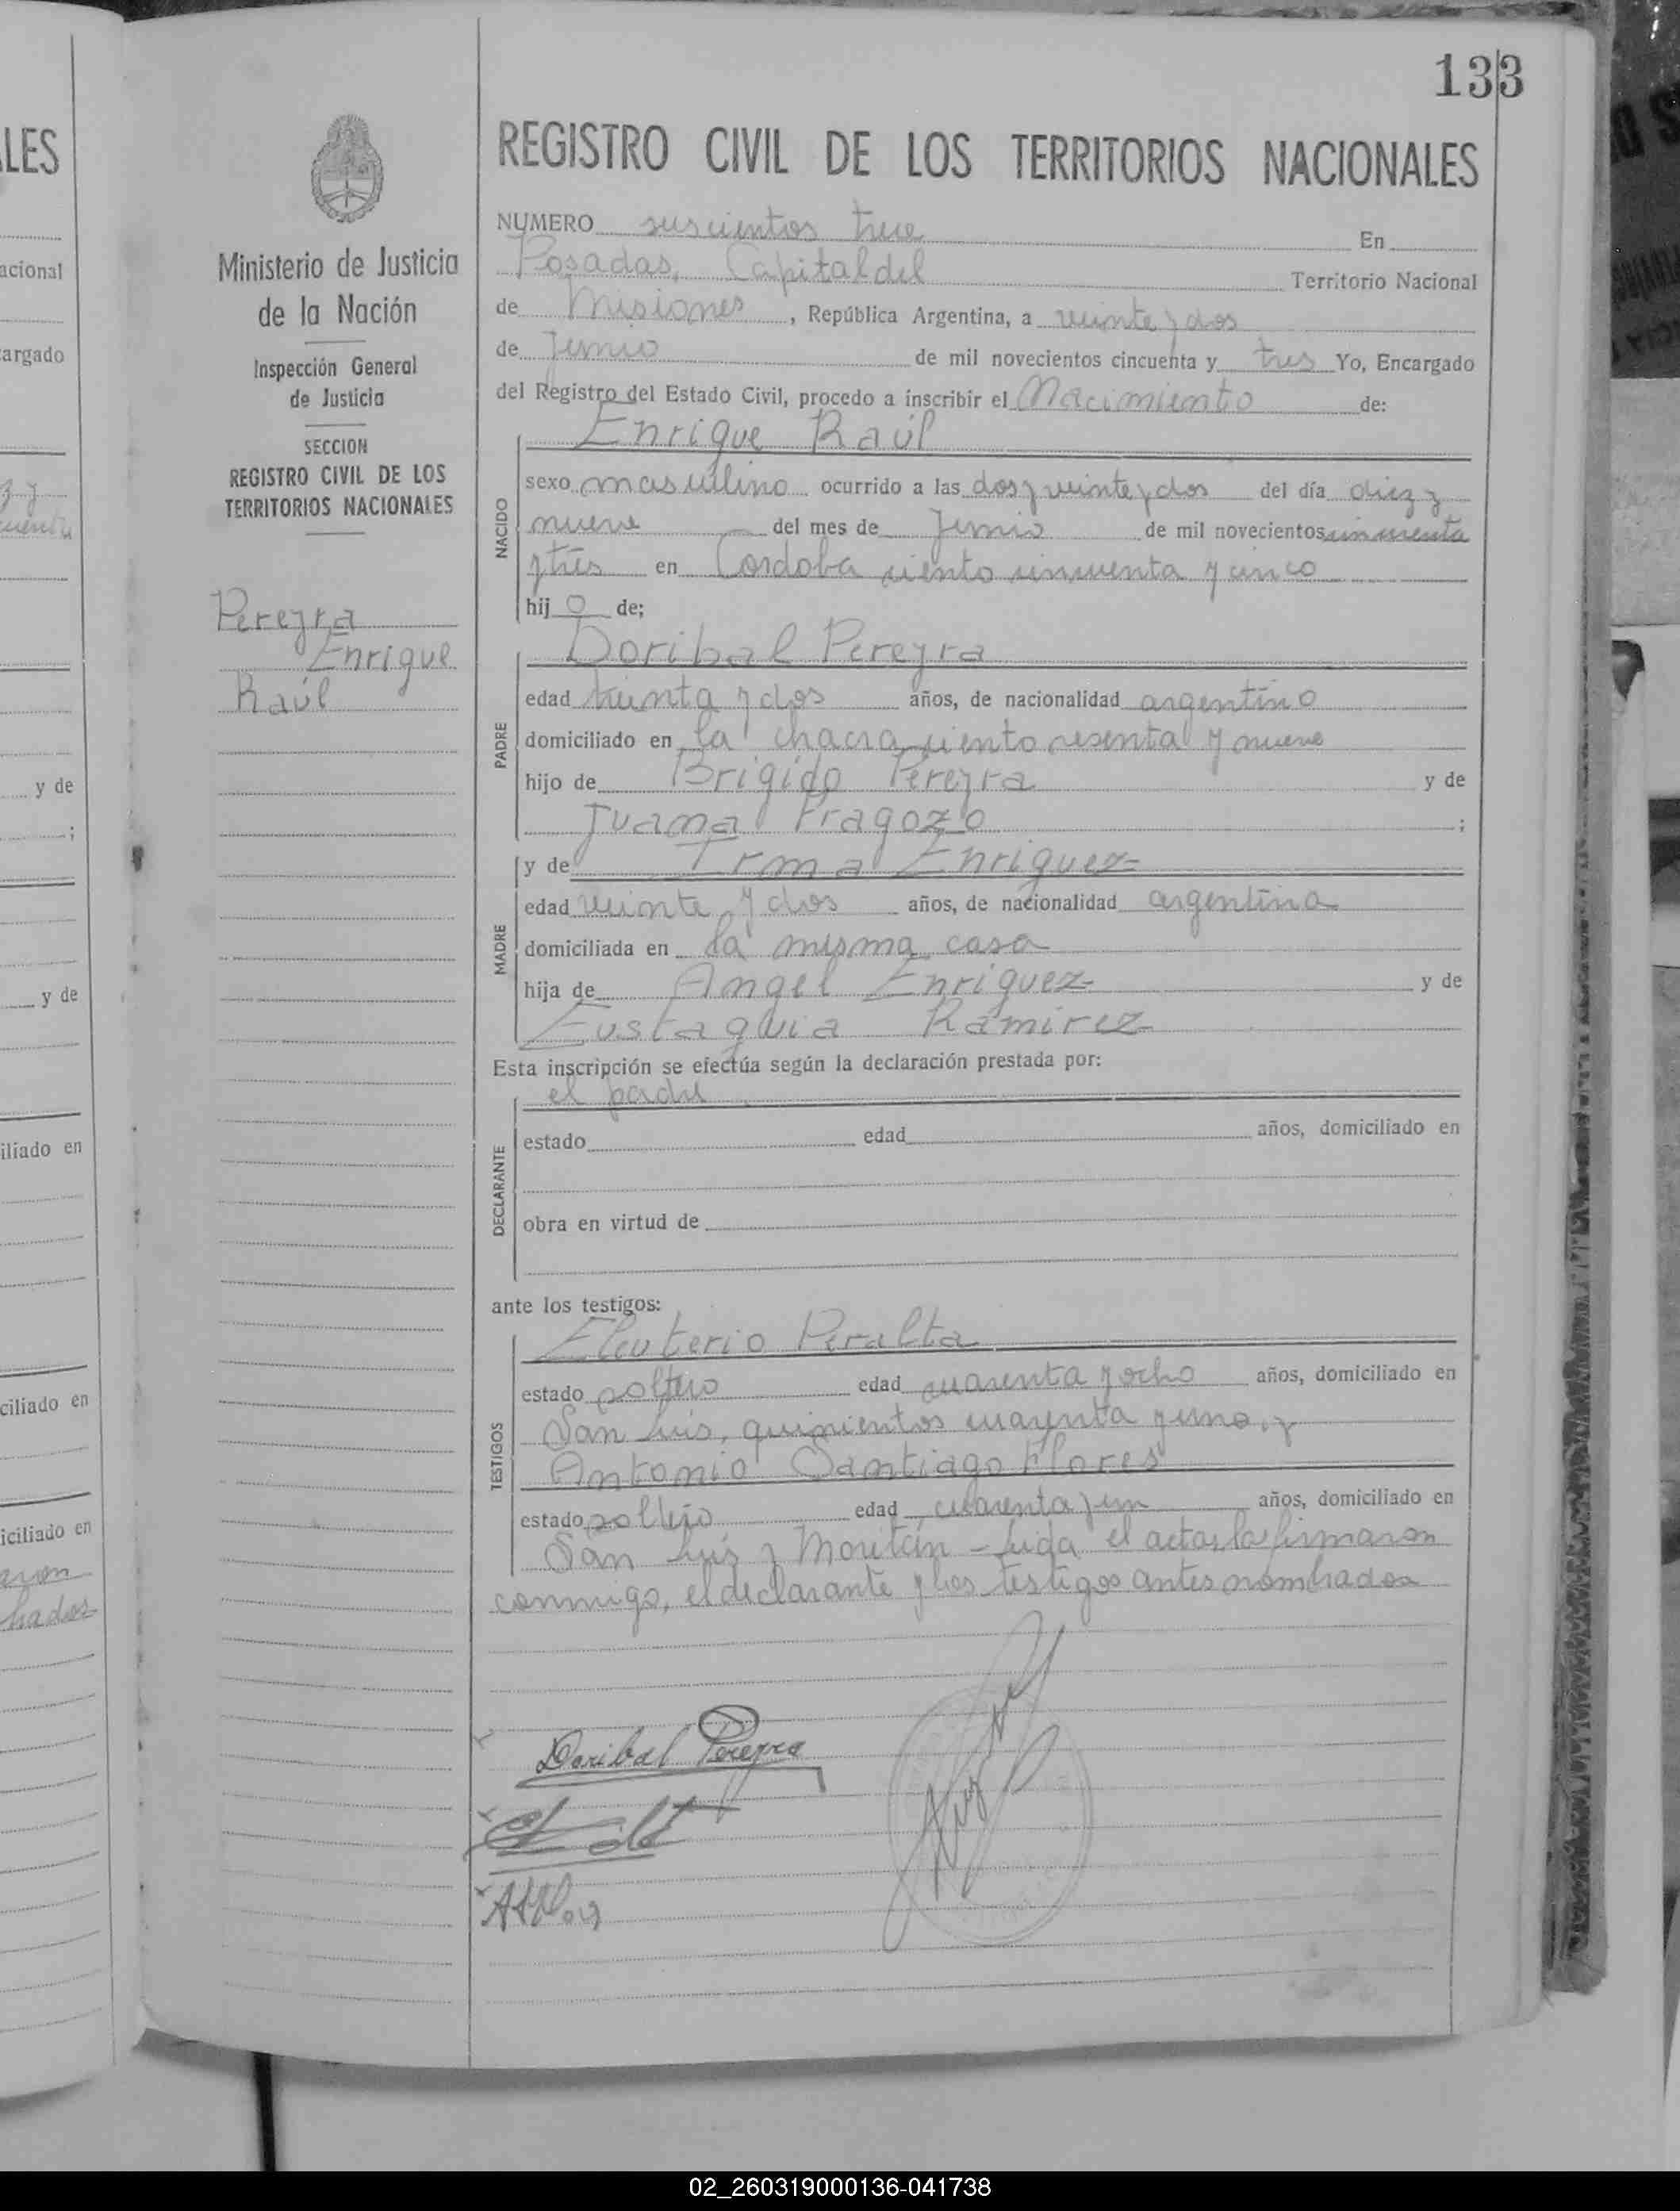 133
LES
REGISTRO CIVIL DE LOS TERRITORIOS NACIONALES
Ministerio de Justicia
de la Nación
Inspección General
de Justicia
SECCION
REGISTRO CIVIL DE LOS
TERRITORIOS NACIONALES
Pereyra
Enrique
Raúl
NUMERO seiscientos trece En
Posadas, Capital del Territorio Nacional
de Misiones, República Argentina, a veinte y dos
de Junio de mil novecientos cincuenta y tres Yo, Encargado
del Registro del Estado Civil, procedo a inscribir el Nacimiento de:
NACIDO
Enrique Raúl
sexo masculino ocurrido a las dos y veinte y dos del día diez y
nueve del mes de Junio de mil novecientos cincuenta
y tres en Córdoba ciento cincuenta y cinco
hij o de;
PADRE
Doribal Pereyra
edad treinta y dos años, de nacionalidad argentino
domiciliado en la chacra ciento sesenta y nueve
hijo de Brigido Pereyra y de
Juana Fragozo ;
MADRE
y de Irma Enriquez
edad veinte y dos años, de nacionalidad argentina
domiciliada en la misma casa
hija de Angel Enriquez y de
Eustaquia Ramirez
Esta inscripción se efectúa según la declaración prestada por:
DECLARANTE
el padre
estado edad años, domiciliado en
obra en virtud de
ante los testigos:
TESTIGOS
Eleuterio Peralta
estado soltero edad cuarenta y ocho años, domiciliado en
San Luis, quinientos cuarenta y uno, y
Antonio Santiago Flores
estado soltero edad cuarenta y un años, domiciliado en
San Luis y Moritán - Leida el acta, la firmaron
conmigo, el declarante y los testigos antes nombrados
Doribal Pereyra
acional
cargado
y de
;
y de
iliado en
ciliado en
iciliado en
02_260319000136-041738